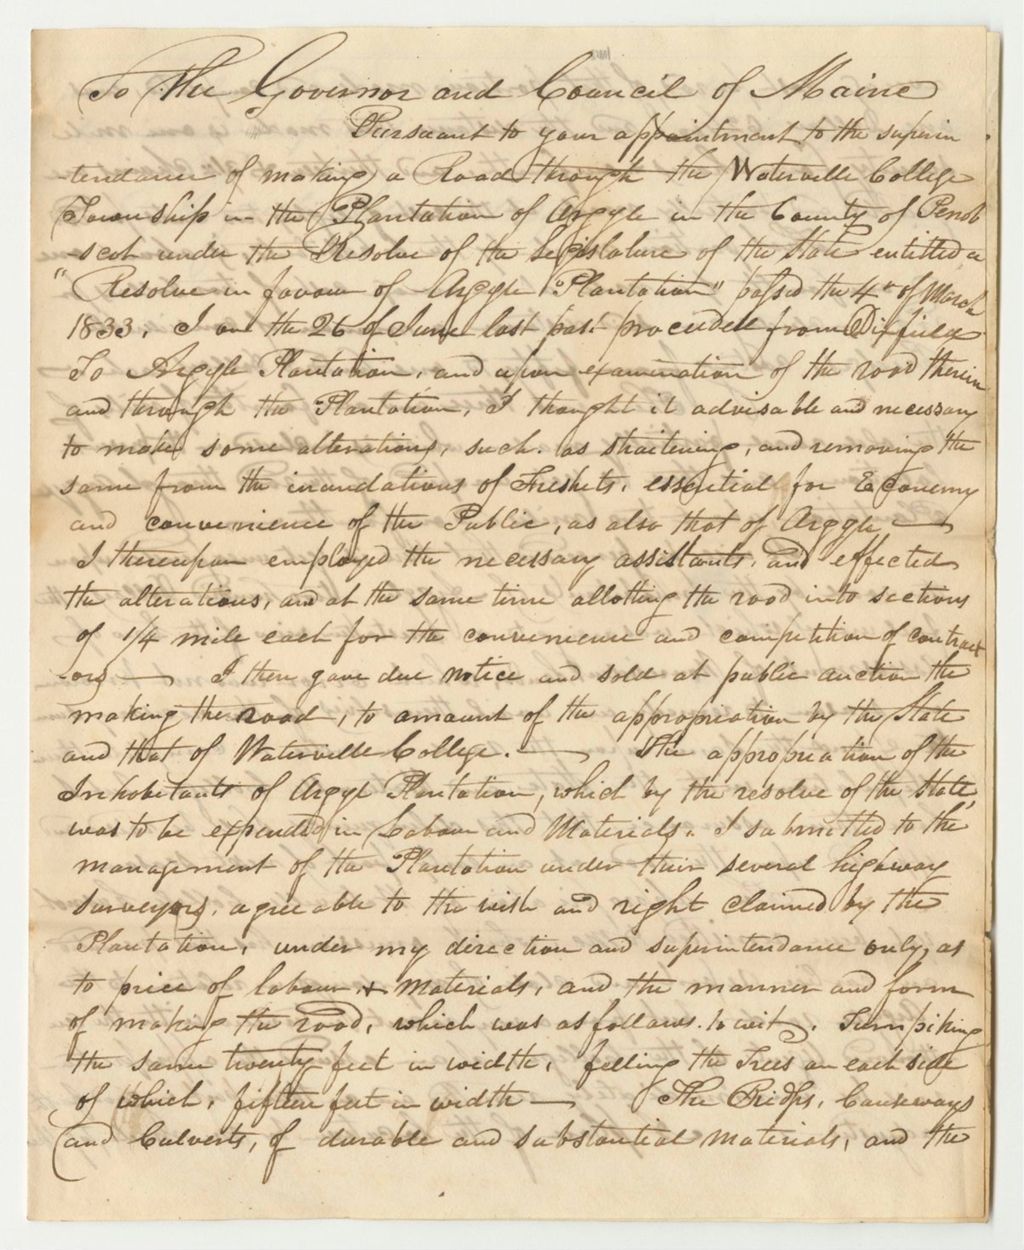 To The Governor and Council of Maine
Pursuant to your appointment to the superin
tendance of making a Road through the Waterville College
Township in the Plantation of Argyle in the County of Penob
scot under the Resolve of the Legislature of the State entitled a
"Resolve in favour of Argyle Plantation" passed the 4th of March
1833. I on the 26 of June last past proceeded from Dixfield
To Argyle Plantation, and upon examination of the road therein
and through the Plantation, I thought it advisable and necessary
to make some alterations, such as straitening, and removing the
same from the inundations of Freshets, essential for Economy
and convenience of the Public, as also that of Argyle —
I thereupon employed the necessary assistants, and effected
the alterations, and at the same time allotting the road into sections
of 1/4 mile each for the convenience and competition of contract
-ors — I then gave due notice and sold at public auction the
making the road, to amount of the appropriation by the State
and that of Waterville College. — The appropriation of the
Inhabetants of Argyl Plantation, which by the resolve of the State,
was to be expended in Labour and Materials, I submitted to the
management of the Plantation under their several highway
surveyors, agreeable to the wish and right claimed by the
Plantation, under my direction and superintendance only, as
to price of labour & materials, and the manner and form
of making the road, which was as follows. to wit, Turnpiking
the same twenty feet in width, felling the Trees on each side
of which, fifteen feet in width — The Bridgs, Causeways
and Culverts, of durable and substantial materials, and the